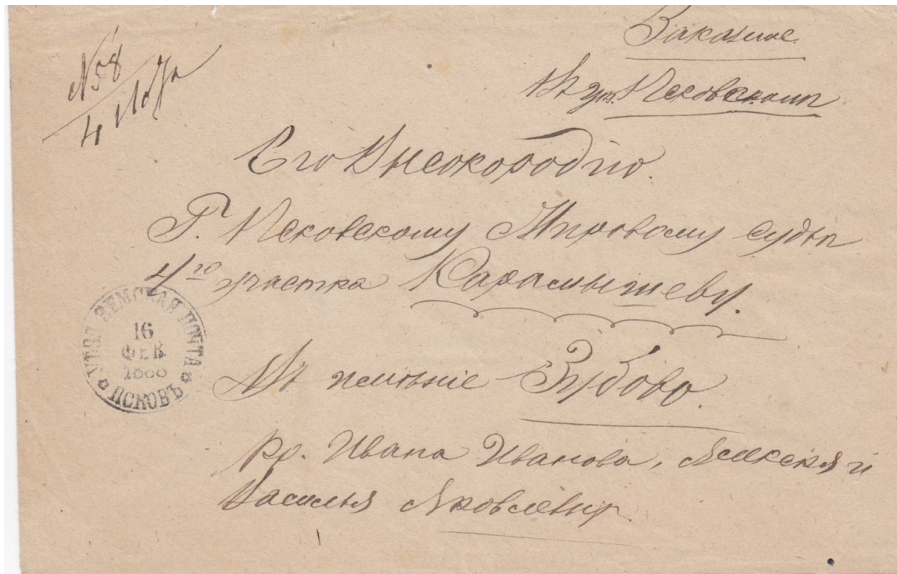 Заказное
№ 58
4
Въ уѣз. Псковскомъ
Его Высокородію.
Г. Псковскому Мировому Судьѣ
4го участка Карамышеву.
УѢЗД. ЗЕМСКАЯ ПОЧТА
16
ФЕВ.
1888
ПСКОВЪ
Въ имѣніе Зубово.
Кр. Ивана Иванова, Алексѣя и
Василья Яковлевыхъ.